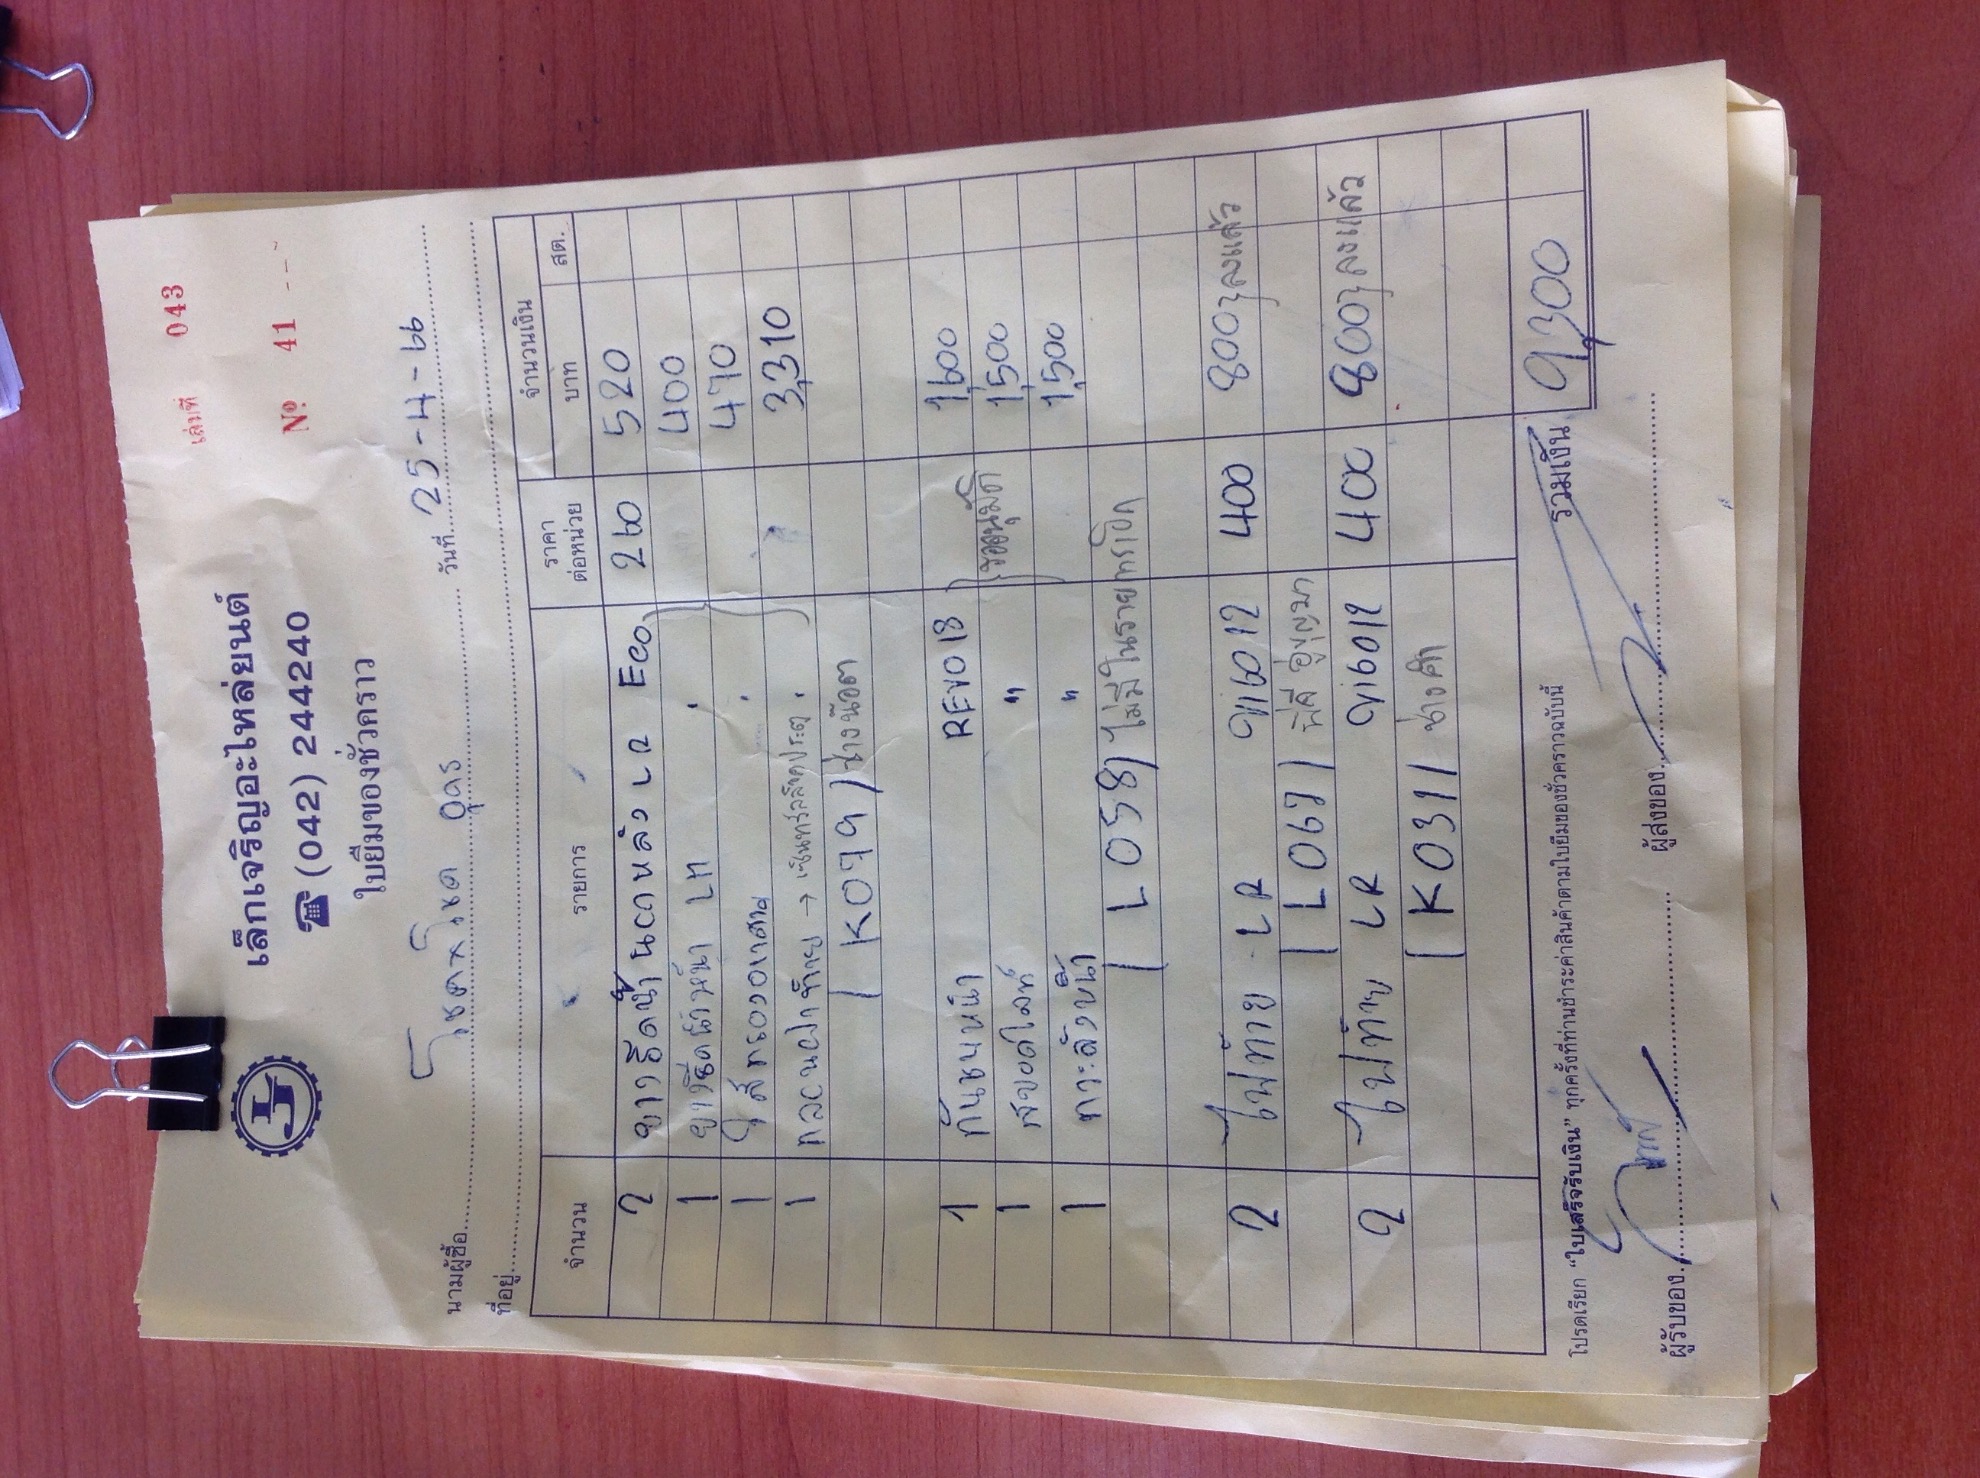 เล่มที่ 043
เล็กเจริญอะไหล่ยนต์
(042) 244240
Nº 41
ใบยืมของชั่วคราว
วันที่ 25-4-66
นามผู้ซื้อ อุดร
ที่อยู่
จำนวน รายการ ราคาต่อหน่วย จำนวนเงิน
บาท สต.
2 ยางรีดน้ำนอกหลัง LR Eco. 260 520
1 ยางรีดน้ำหน้า 400
1 470
1 3,310
K079 / ช่างน๊อต
1 กันชนหน้า REVO 18 1,600
1 สปอตไลท์ " 1,500 รออนุมัติ
1 กระจังหน้า " 1,500
L058 ไม่มีในรายการเบิก
2 ไฟท้าย LR 400 800 ลงแล้ว
L067 /
2 ไฟท้าย LR 400 800 ลงแล้ว
K031 / ช่างศึก
รวมเงิน 9,300
โปรดเรียก “ใบเสร็จรับเงิน” ทุกครั้งที่ท่านชำระค่าสินค้าตามใบยืมของชั่วคราวฉบับนี้
ผู้รับของ ผู้ส่งของ